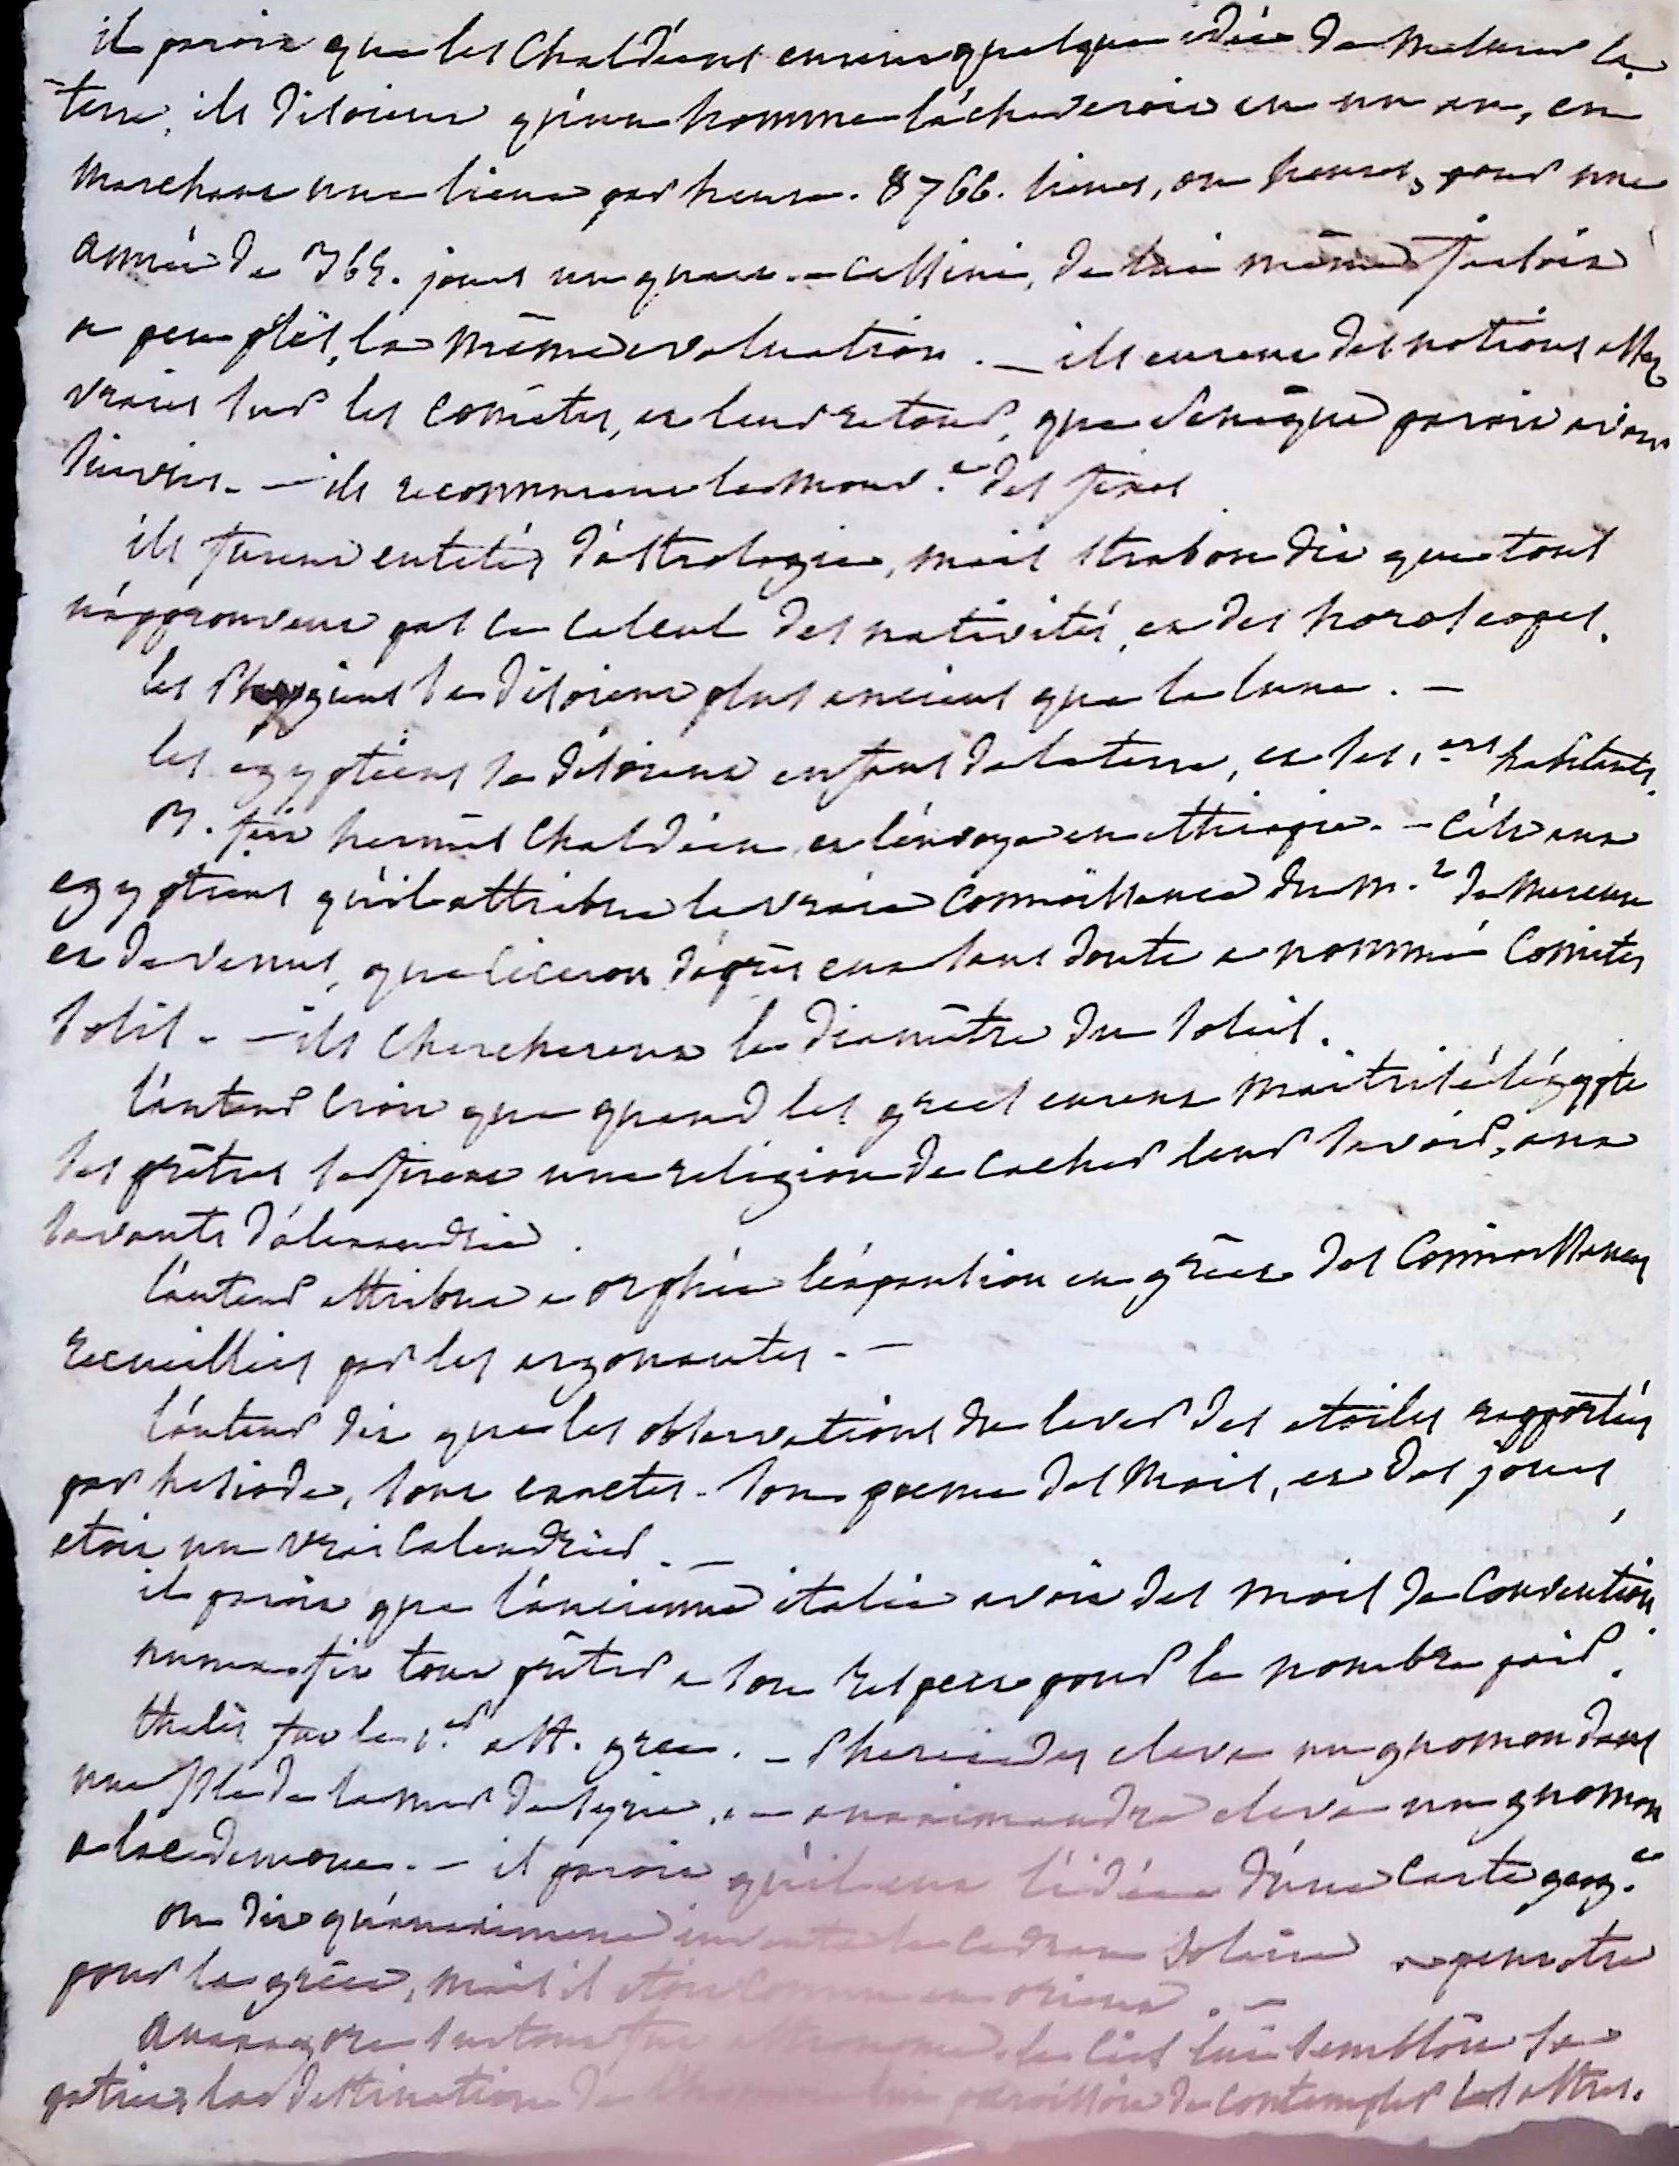 il paroit que les Chaldéens eurent quelque idée de mesurer la
terre, ils disoient qu'un homme l'acheveroit en un an, en
marchant une lieue par heure. 8766. lieues, ou heures, pour une
année de 365. jours un quart. — Cassini, de lui même faisoit
a peu près, la même evaluation. — ils eurent des notions assez
vraies sur les comètes, et leur retour, que Senèque paroit avoir
suivies. — ils reconnurent le mouv.t des fixes
ils furent entetés d'astrologie, mais strabon dit que tous
n'approuvent pas le calcul des nativités, et des horoscopes.
les Phrygiens se disoient plus anciens que la lune. —
les égyptiens se disoient enfans de la terre, et les 1.ers habitants.
B. fait hermès Chaldéen, et l'envoye en ethiopie. — c'est aux
egyptiens qu'il attribue la vraie connoissance du m.t de mercure
et de venus, que ciceron d'après eux sans doute a nommé comites
solis. — ils chercherent le diamètre du soleil.
l'auteur croit que quand les grecs eurent maitrisé l'égypte
les prêtres se firent une religion de cacher leur savoir, aux
savants d'alexandrie.
l'auteur attribue a orphée l'expantion en grèce des connoissances
recueillies par les argonautes. —
l'auteur dit que les observations du lever des etoiles rapportées
par hesiode, sont exactes. son poeme des mois, et des jours,
etoit un vrai calendrier. —
il paroit que l'ancienne italie avoit des mois de convention.
numa fit tout prêter a son respect pour le nombre pair.
thalès fut le 1.er ast. grec. — Pherecides eleva un gnomon dans
une isle de la mer de syrie. — anaximandre eleva un gnomon
a lacedemone. — il paroit qu'il eut l'idée d'une carte geog.e
on dit qu'anaximene inventa le cadran solaire peut etre
pour la grèce, mais il etoit connu en orient. —
Anaxagore surtout fut astronome. le ciel lui sembloit sa
patrie, la destination de l'homme lui paroissoit de contempler les astres.